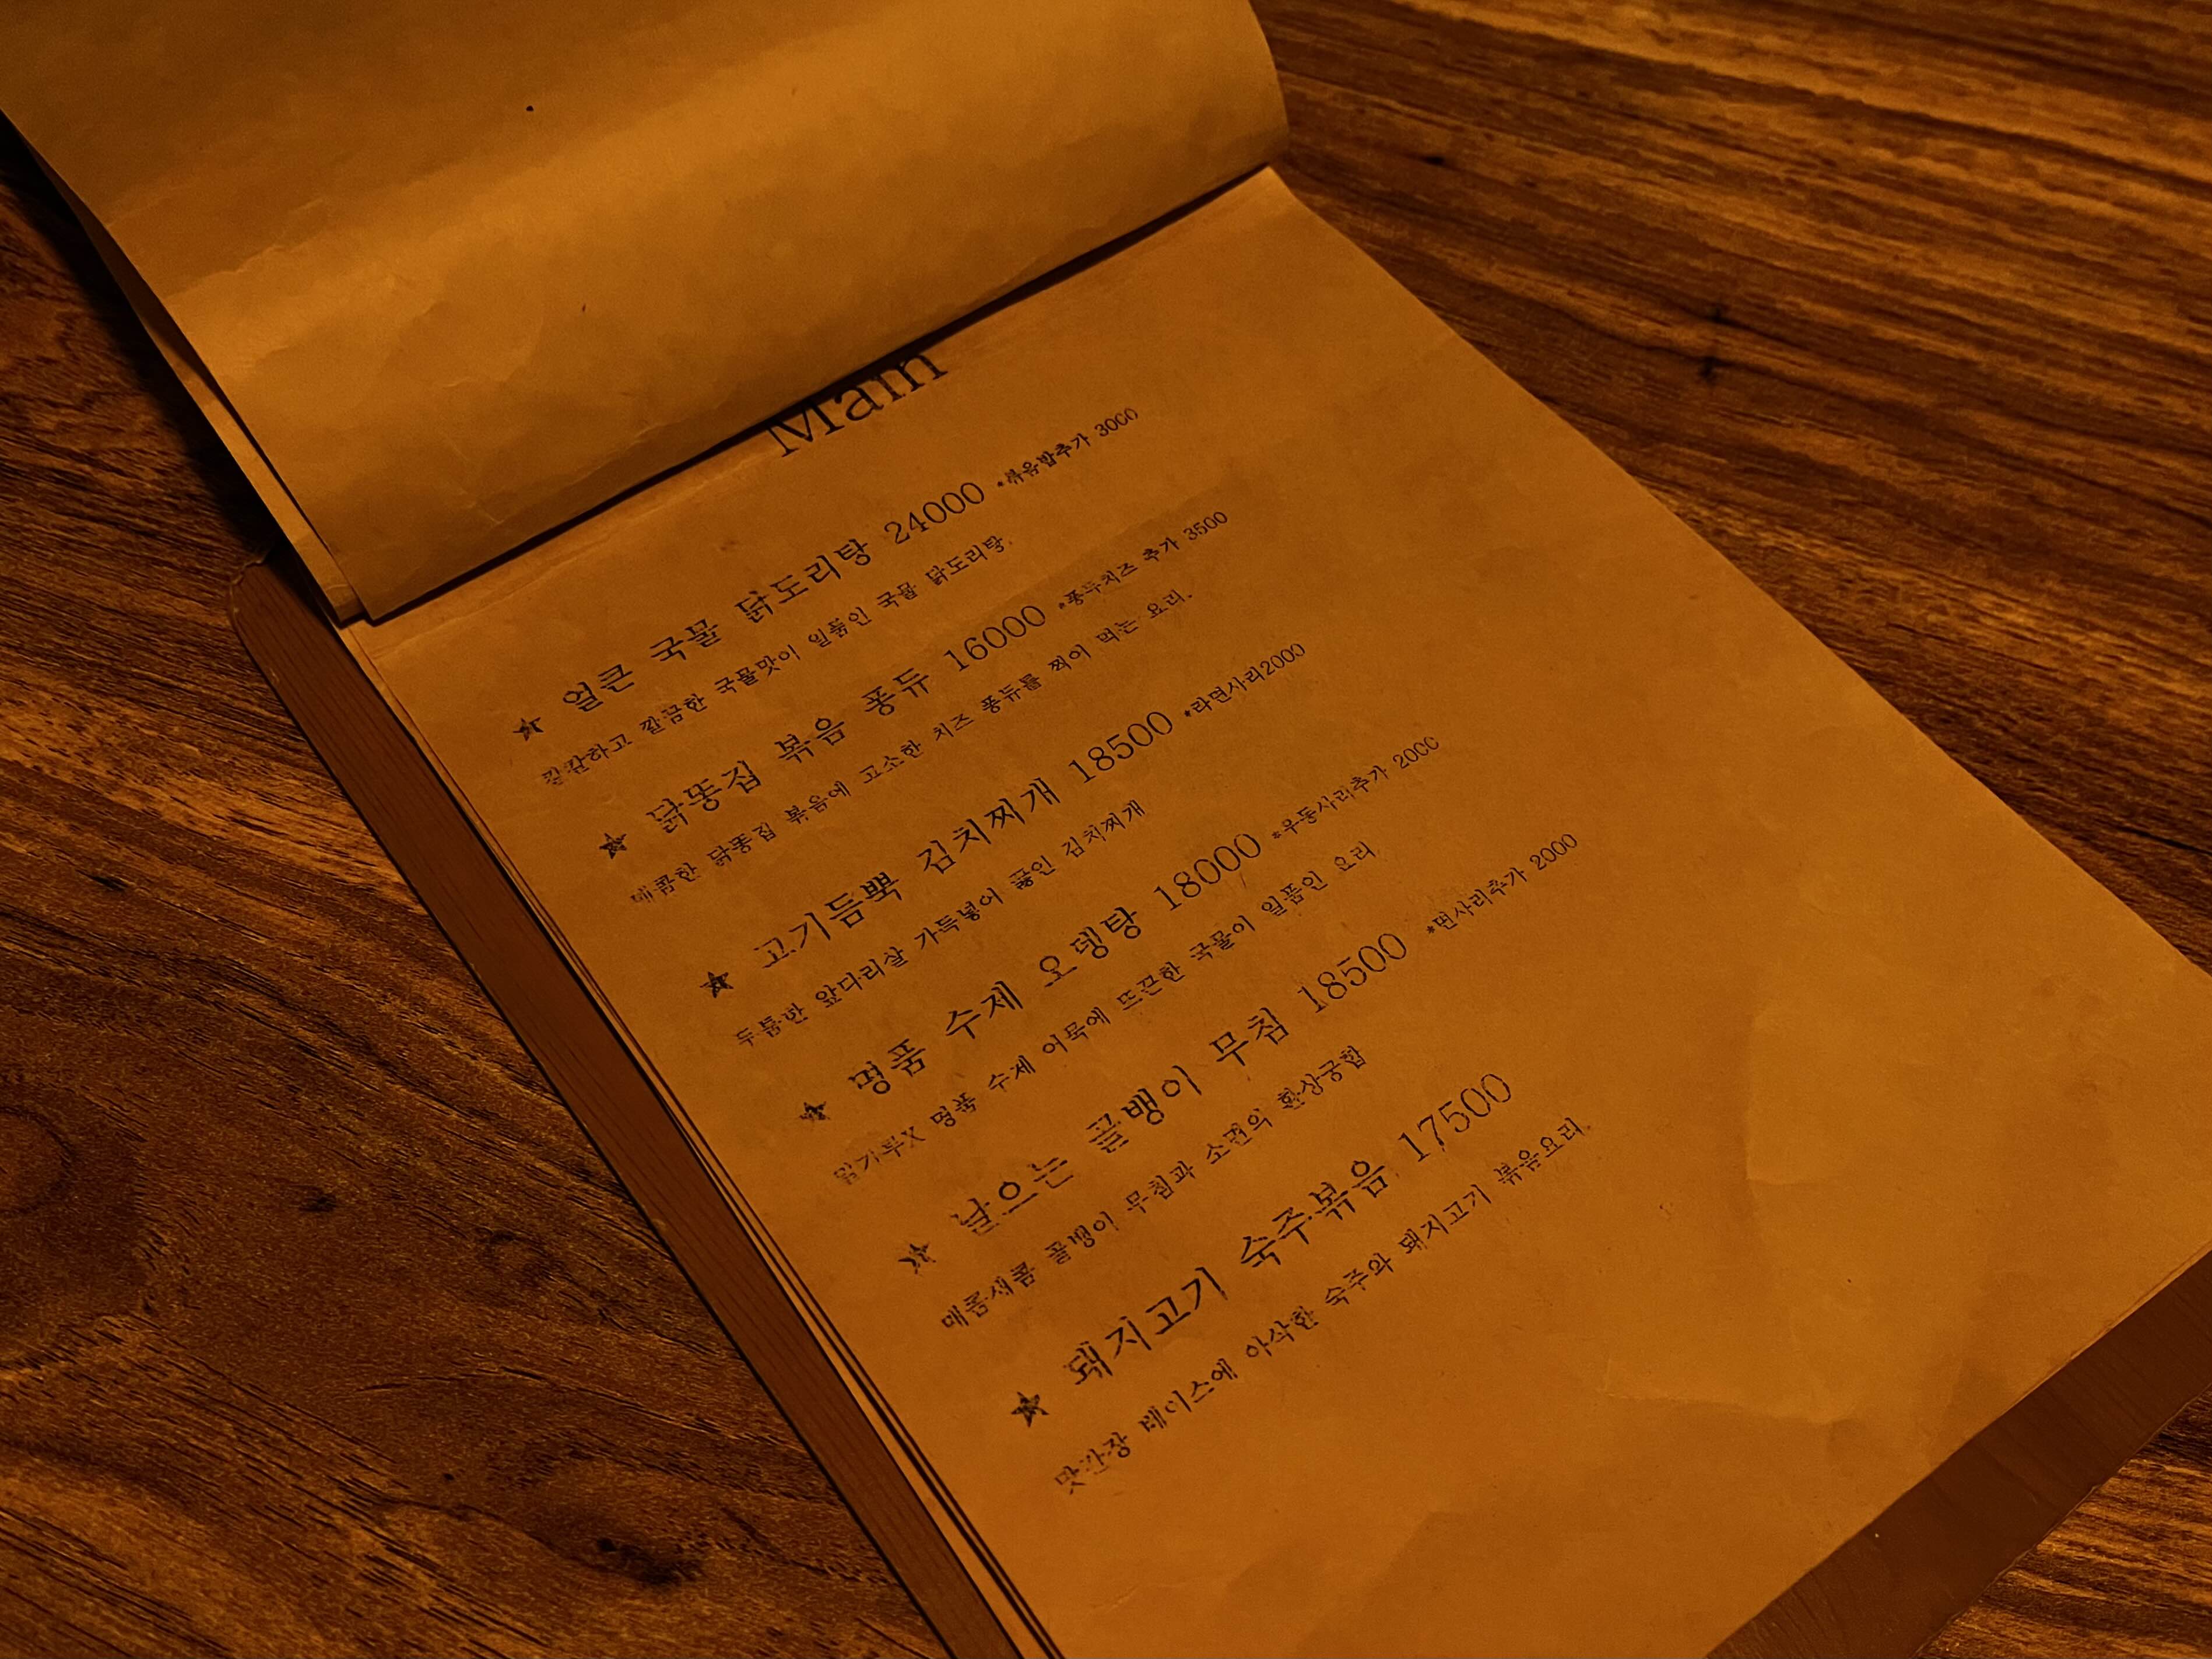 Main
★ 얼큰 국물 닭도리탕 24000 *볶음밥추가 3000
칼칼하고 깔끔한 국물맛이 일품인 국물 닭도리탕.
★ 닭똥집 볶음 퐁듀 16000 *퐁듀치즈 추가 3500
매콤한 닭똥집 볶음에 고소한 치즈 퐁듀를 찍어 먹는 요리.
★ 고기듬뿍 김치찌개 18500 *라면사리2000
두툼한 앞다리살 가득넣어 끓인 김치찌개
★ 명품 수제 오뎅탕 18000 *우동사리추가 2000
밀가루X 명품 수제 어묵에 뜨끈한 국물이 일품인 요리
★ 날으는 골뱅이 무침 18500 *면사리추가 2000
매콤새콤 골뱅이 무침과 소면의 환상궁합
★ 돼지고기 숙주볶음 17500
맛간장 베이스에 아삭한 숙주와 돼지고기 볶음요리.